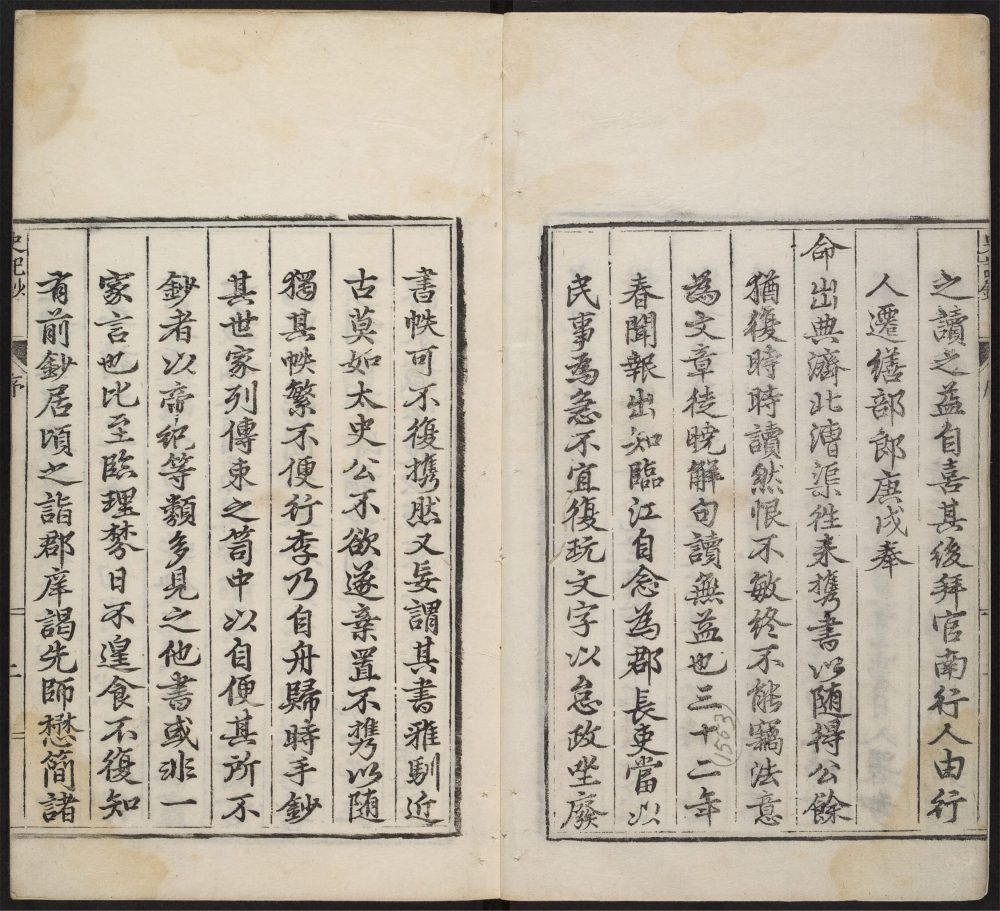 之讀之益自喜其後拜官南行人由行
人遷繕部郎庚戌奉
命出典濟北漕渠徃来携書以随得公餘
猶復時時讀然恨不敏終不能竊法意
為文章徒曉解句讀無益也三十二年
春聞報出知臨江自念為郡長吏當以
民事為急不宜復玩文字以怠政坐廢
1563
書帙可不復携然又妄謂其書雅馴近
古莫如太史公不欲遂棄置不携以随
獨其帙繁不便行李乃自舟歸時手鈔
其世家列傳束之笥中以自便其所不
鈔者以帝紀等類多見之他書或非一
家言也比至臨理棼日不遑食不復知
有前鈔居頃之詣郡庠謁先師懋簡諸
史記鈔
序
二